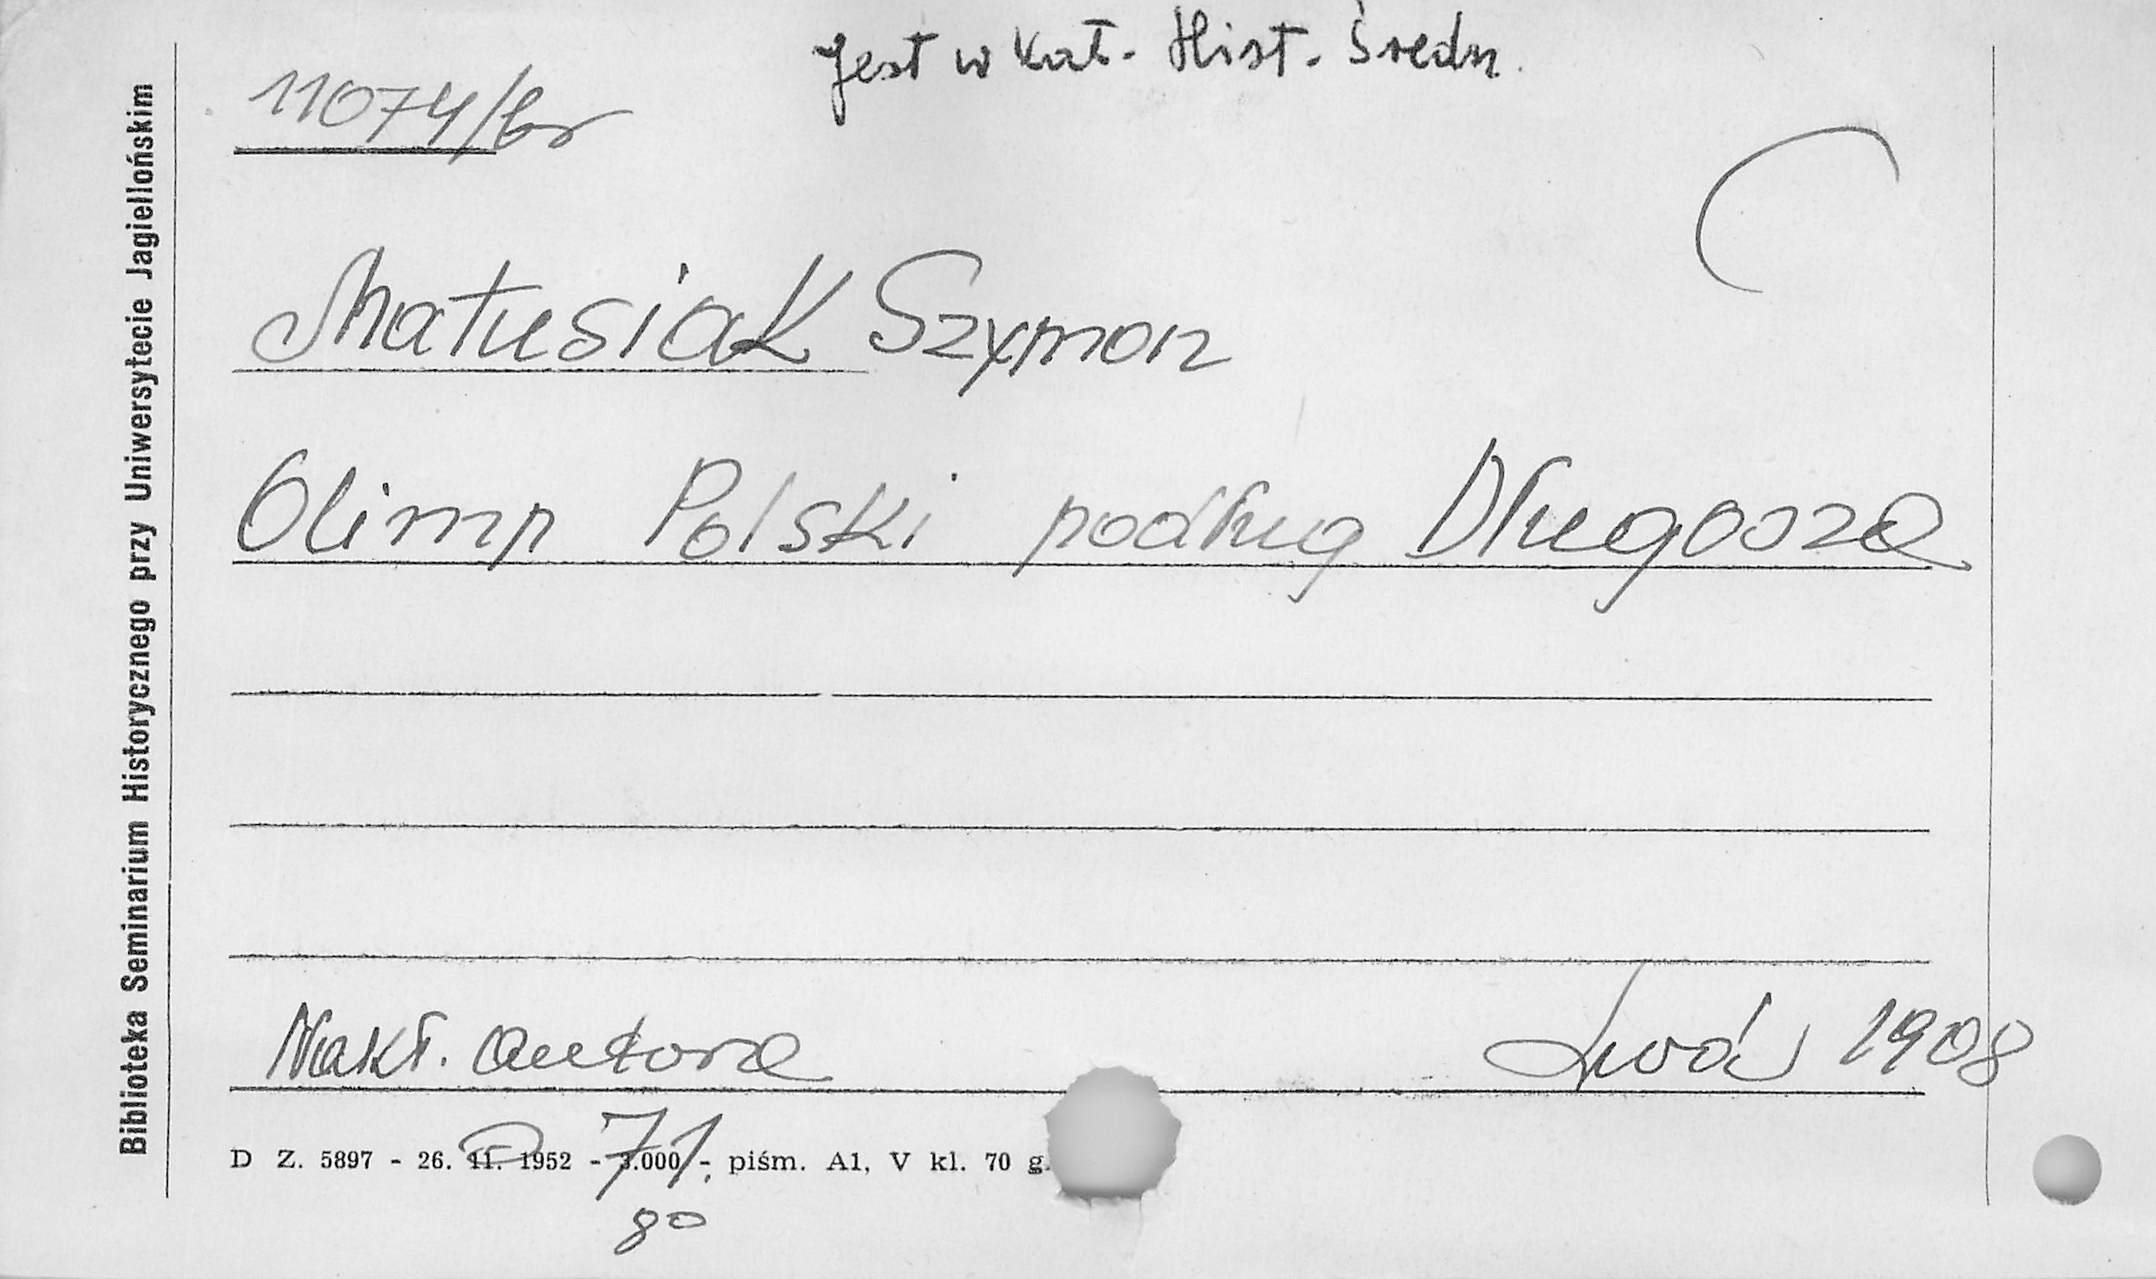 Jest w kat. Hist. Średn.
11074/br
Matusiak Szymon
Olimp Polski podług Długosza
Nakł. autora Lwów 1908
D Z. 5897 - 26. 11. 1952 - 3.000 - piśm. A1, V kl. 70 g.
71.
80
Biblioteka Seminarium Historycznego przy Uniwersytecie Jagiellońskim